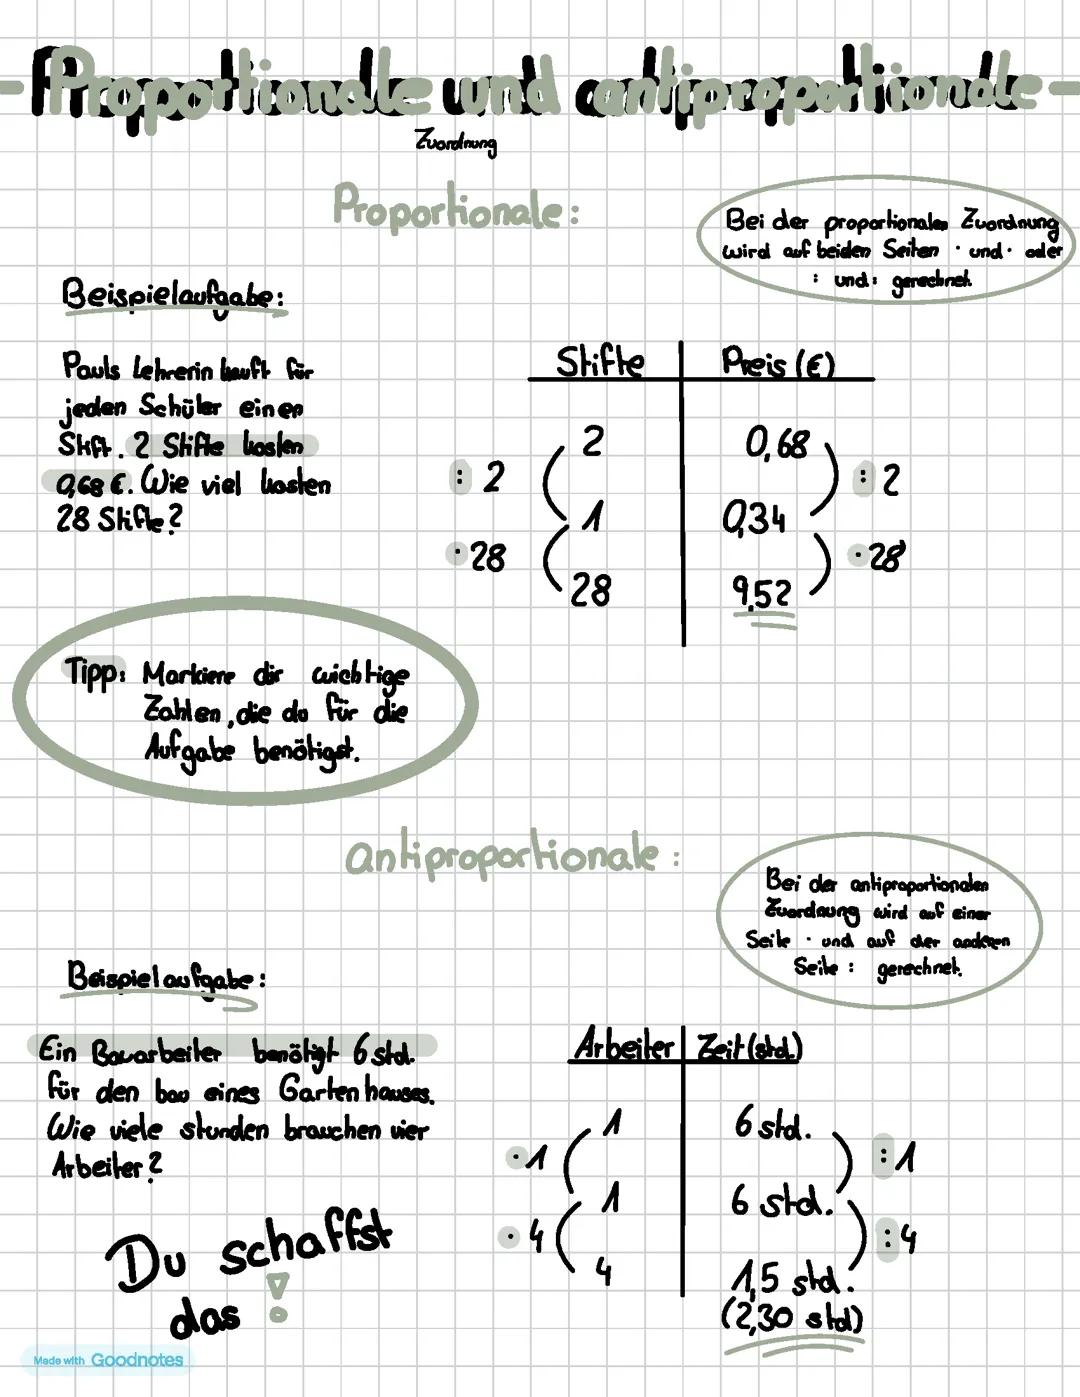 - Proportionale und antiproportionale -
Zuordnung
Proportionale:
Bei der proportionalen Zuordnung
wird auf beiden Seiten · und · oder
: und : gerechnet.
Beispielaufgabe:
Pauls Lehrerin kauft für
jeden Schüler einen
Stift. 2 Stifte kosten
0,68 €. Wie viel kosten
28 Stifte?
Stifte | Preis (€)
2 0,68
: 2 : 2
1 0,34
· 28 · 28
28 9,52
Tipp: Markiere dir wichtige
Zahlen, die du für die
Aufgabe benötigst.
antiproportionale:
Bei der antiproportionalen
Zuordnung wird auf einer
Seite · und auf der anderen
Seite : gerechnet.
Beispielaufgabe:
Ein Bauarbeiter benötigt 6 std.
für den bau eines Gartenhauses.
Wie viele stunden brauchen vier
Arbeiter?
Arbeiter | Zeit (std.)
1 6 std.
· 1 : 1
1 6 std.
· 4 : 4
4 1,5 std.
(2,30 std)
Du schaffst
das !
Made with Goodnotes